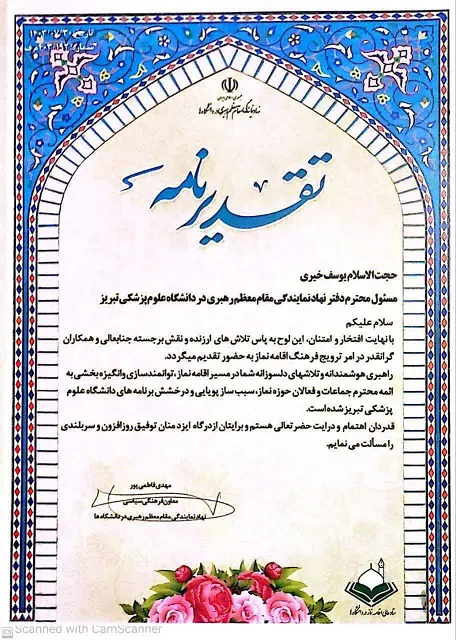 تاریخ: ۱۴۰۳/۰۷/۳۰
جمهوری اسلامی ایران
نهاد نمایندگی مقام معظم رهبری در دانشگاه‌ها
تقدیرنامه
حجت الاسلام یوسف خیری
مسئول محترم دفتر نهاد نمایندگی مقام معظم رهبری در دانشگاه علوم پزشکی تبریز
سلام علیکم
با نهایت افتخار و امتنان، این لوح به پاس تلاش های ارزنده و نقش برجسته جنابعالی و همکاران
گرانقدر در امر ترویج فرهنگ اقامه نماز به حضور تقدیم میگردد.
راهبری هوشمندانه و تلاشهای دلسوزانه شما در مسیر اقامه نماز، توانمندسازی وانگیزه بخشی به
ائمه محترم جماعات و فعالان حوزه نماز، سبب ساز پویایی و درخشش برنامه های دانشگاه علوم
پزشکی تبریز شده است.
قدردان اهتمام و درایت حضرتعالی هستم و برایتان از درگاه ایزد منان توفیق روزافزون و سربلندی
را مسألت می نمایم.
مهدی فاطمی پور
معاون فرهنگی سیاسی
نهاد نمایندگی مقام معظم رهبری در دانشگاه ها
ستاد عالی اقامه نماز دانشگاه‌ها
Scanned with CamScanner